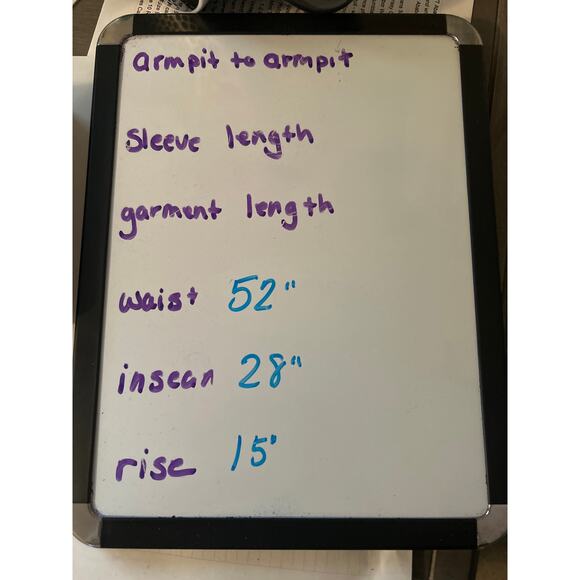 armpit to armpit
Sleeve length
garment length
waist 52"
insean 28"
rise 15"